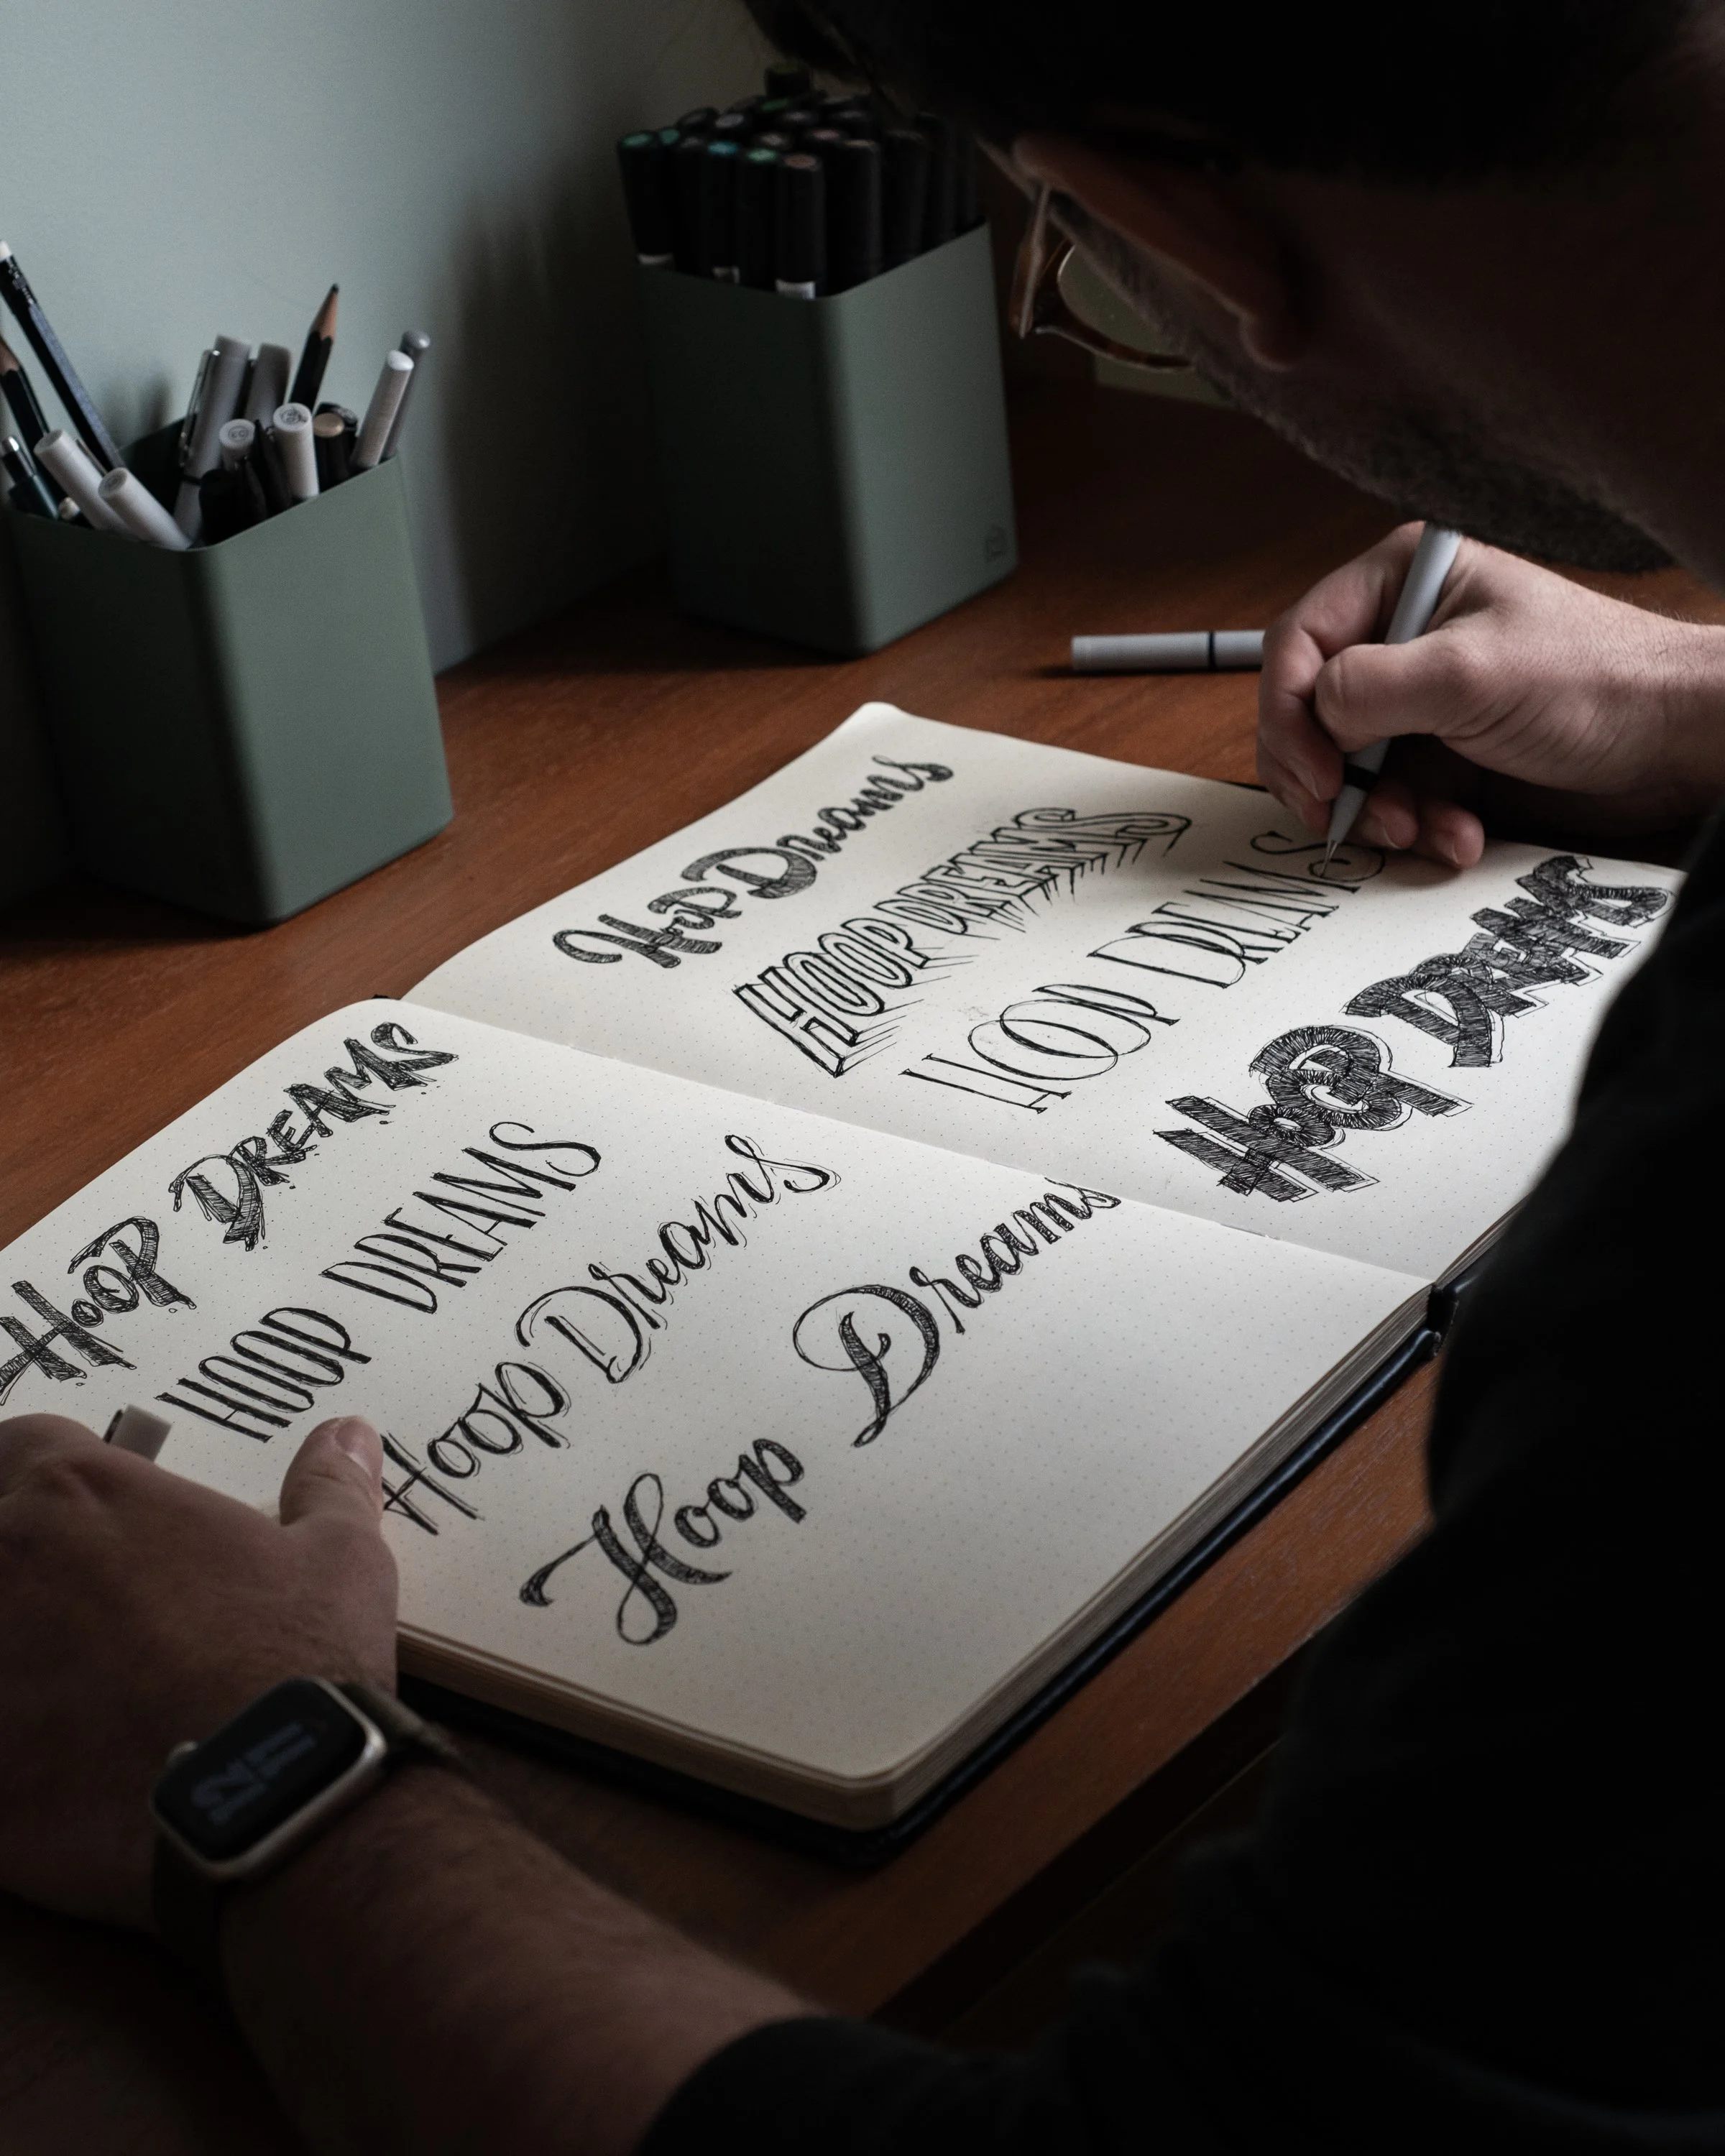 Hoop Dreams
HOOP DREAMS
HOOP DREAMS
HOOP DREAMS
HOOP DREAMS
HOOP DREAMS
Hoop Dreams
Hoop Dreams